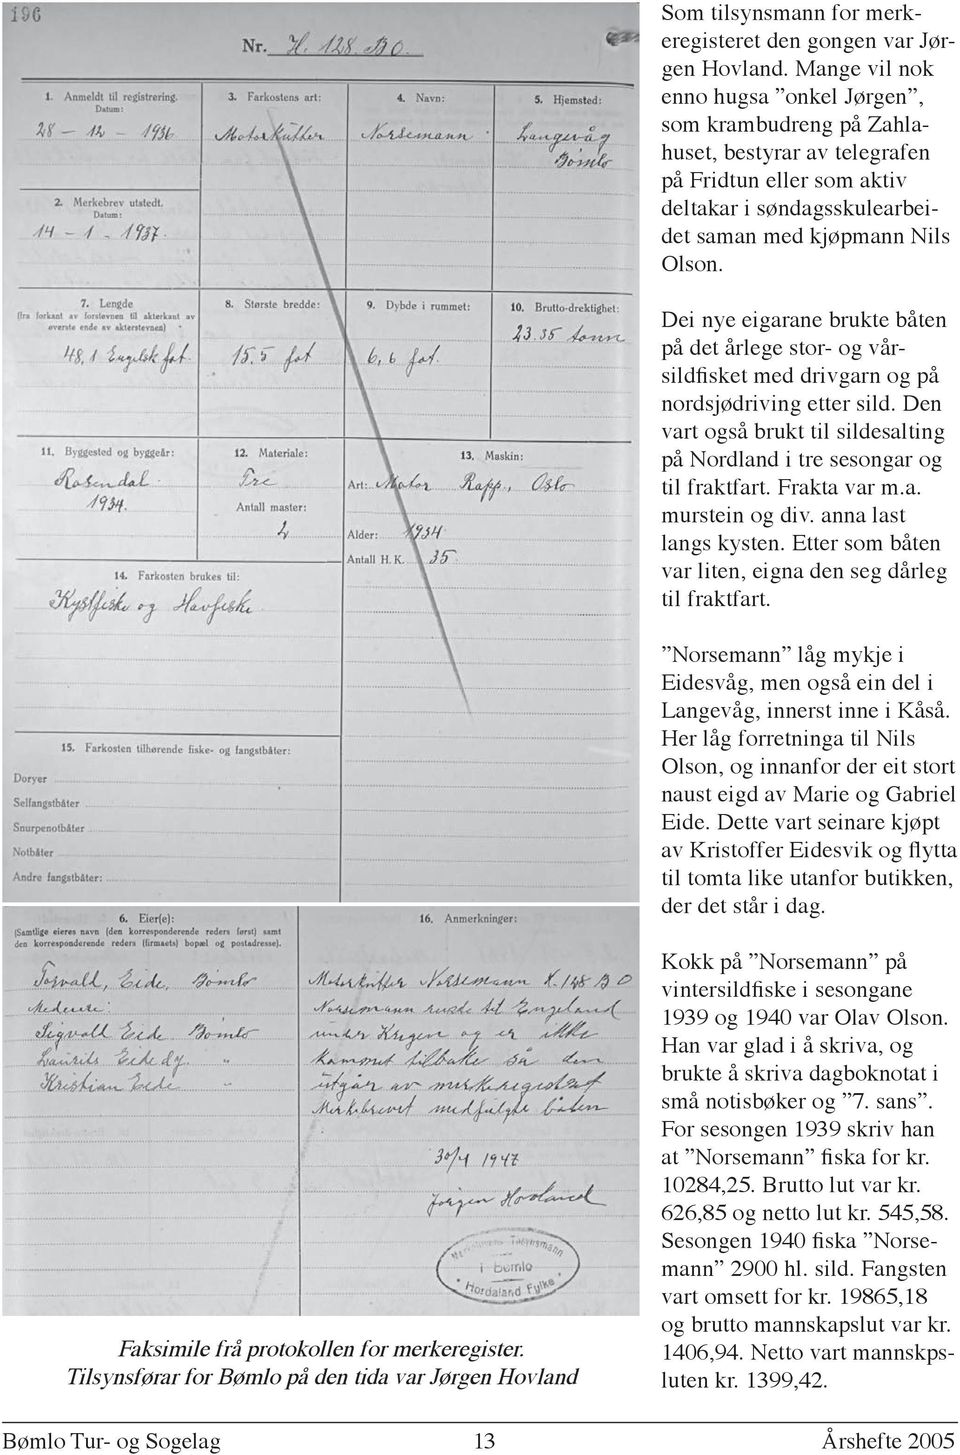 196
Nr. H. 128. BO.
1. Anmeldt til registrering.
Datum:
28 – 12 – 1936
2. Merkebrev utstedt.
Datum:
14 – 1 - 1937.
3. Farkostens art:
Motorkutter
4. Navn:
Norsemann
5. Hjemsted:
Langevåg
Bømlo
7. Lengde
(fra forkant av forstevnen til akterkant av
øverste ende av akterstevnen)
48,1 Engelsk fot.
8. Største bredde:
15,5 fot
9. Dybde i rummet:
6,6 fot.
10. Brutto-drektighet:
23.35 tonn
11. Byggested og byggeår:
Rosendal
1934.
12. Materiale:
Tre
Antall master:
2
13. Maskin:
Art: Motor Rapp., Oslo
Alder: 1934
Antall H. K. 35
14. Farkosten brukes til:
Kystfiske og Havfiske
15. Farkosten tilhørende fiske- og fangstbåter:
Doryer
Selfangstbåter
Snurpenotbåter
Notbåter
Andre fangstbåter:
6. Eier(e):
(Samtlige eieres navn (den korresponderende reders først) samt
den korresponderende reders (firmaets) bopæl og postadresse).
Torvald, Eide, Bømlo
Medeiere:
Sigvall Eide Bømlo
Laurits Eide dy. "
Kristian Eide "
16. Anmerkninger:
Motorkutter Norsemann H. 128 B O
Norsemann reiste til Engeland
under Krigen og er ikke
kommet tilbake så den
utgår av merkeregisteret
Merkebrevet medfulgte båten
30/4 1947
Jørgen Hovland
Merkenemns Tilsynsmann
i Bømlo
Hordaland Fylke
Faksimile frå protokollen for merkeregister.
Tilsynsførar for Bømlo på den tida var Jørgen Hovland
Som tilsynsmann for merk-
eregisteret den gongen var Jør-
gen Hovland. Mange vil nok
enno hugsa ”onkel Jørgen”,
som krambudreng på Zahla-
huset, bestyrar av telegrafen
på Fridtun eller som aktiv
deltakar i søndagsskulearbei-
det saman med kjøpmann Nils
Olson.
Dei nye eigarane brukte båten
på det årlege stor- og vår-
sildfisket med drivgarn og på
nordsjødriving etter sild. Den
vart også brukt til sildesalting
på Nordland i tre sesongar og
til fraktfart. Frakta var m.a.
murstein og div. anna last
langs kysten. Etter som båten
var liten, eigna den seg dårleg
til fraktfart.
”Norsemann” låg mykje i
Eidesvåg, men også ein del i
Langevåg, innerst inne i Kåså.
Her låg forretninga til Nils
Olson, og innanfor der eit stort
naust eigd av Marie og Gabriel
Eide. Dette vart seinare kjøpt
av Kristoffer Eidesvik og flytta
til tomta like utanfor butikken,
der det står i dag.
Kokk på ”Norsemann” på
vintersildfiske i sesongane
1939 og 1940 var Olav Olson.
Han var glad i å skriva, og
brukte å skriva dagboknotat i
små notisbøker og ”7. sans”.
For sesongen 1939 skriv han
at ”Norsemann” fiska for kr.
10284,25. Brutto lut var kr.
626,85 og netto lut kr. 545,58.
Sesongen 1940 fiska ”Norse-
mann” 2900 hl. sild. Fangsten
vart omsett for kr. 19865,18
og brutto mannskapslut var kr.
1406,94. Netto vart mannskps-
luten kr. 1399,42.
Bømlo Tur- og Sogelag 13 Årshefte 2005